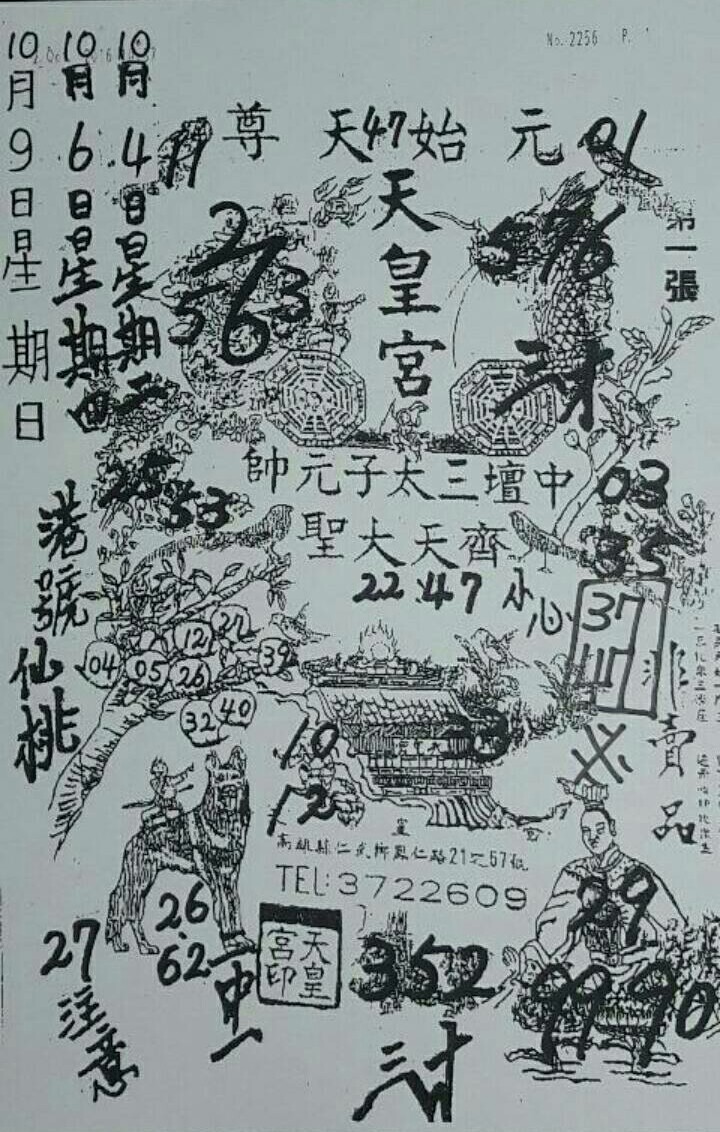 No. 2256 P.
10月4日星期二
10月6日星期四
10月9日星期日
元始天尊
47
01
11
天皇宮
第一張
2
7
563
576
三才
中壇三太子元帥
03
25
53
齊天大聖
35
22.47
小心
37
港號仙桃
12
27
04
05
26
39
32 40
非賣品
10
33
12
高雄縣仁武鄉鳳仁路21之57號
TEL:3722609
26
62
中一
27
注意
天皇
宮印
352
29
9990